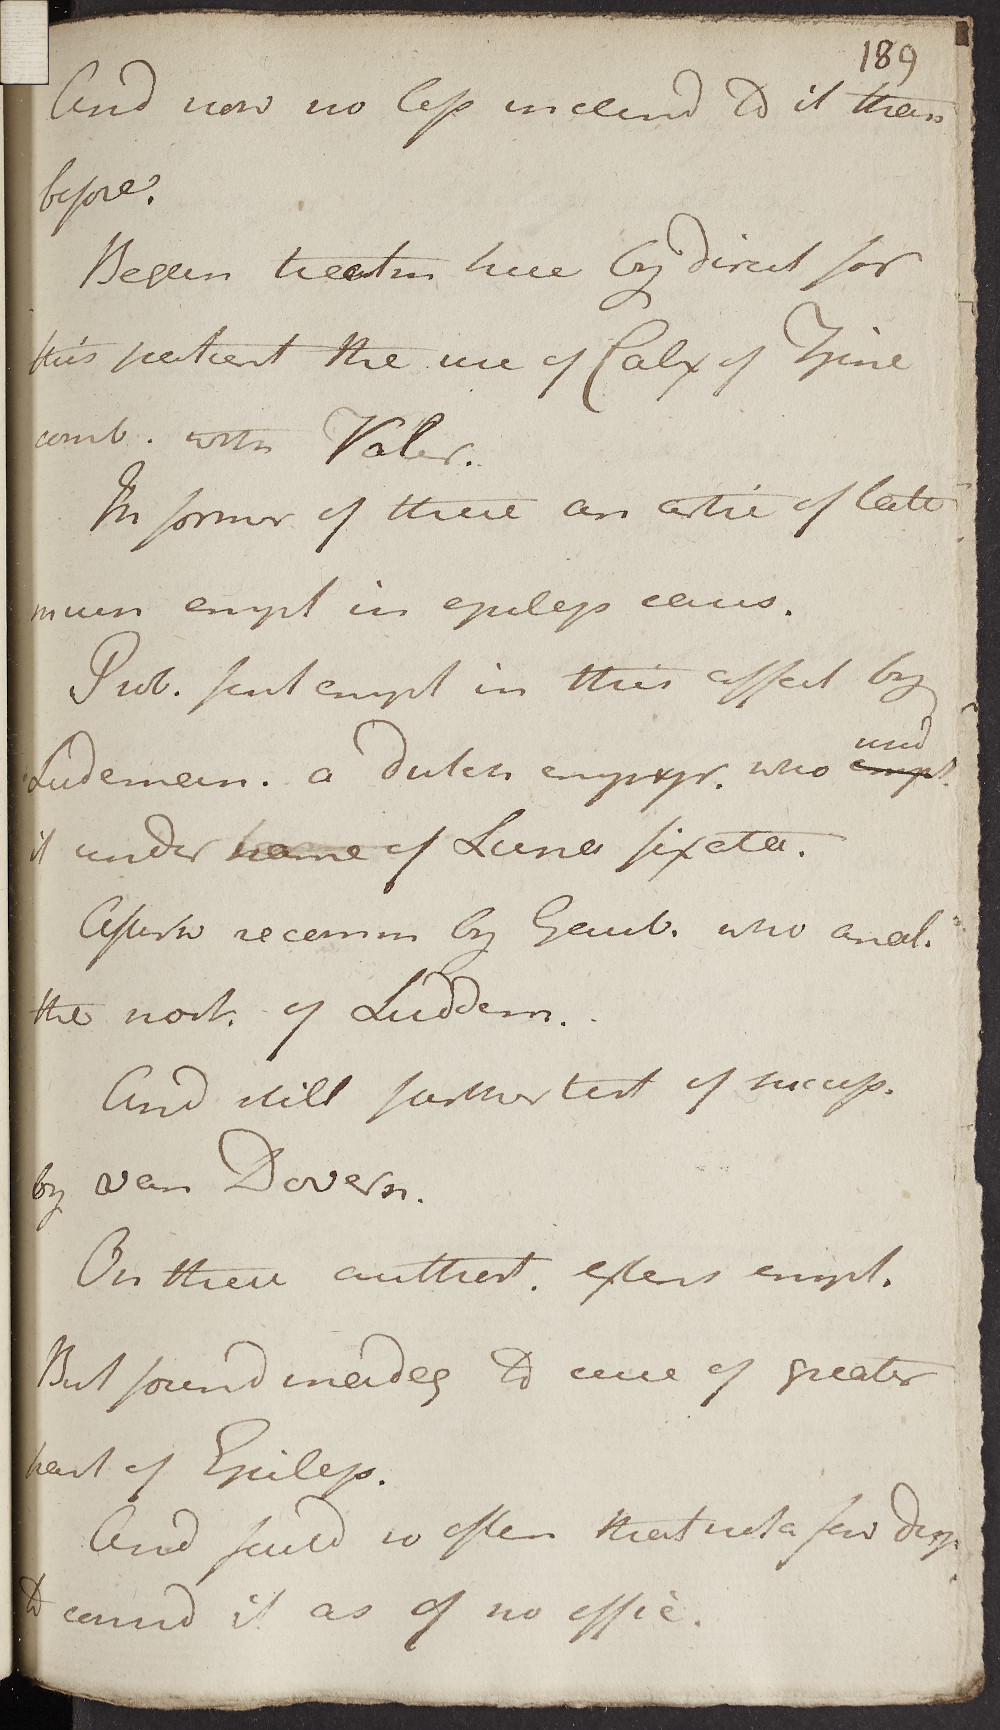 189
And now no less inclind to it than
before.
Began treatm here by direct for
this patient the use of Calx of Zinc
comb. with Valer.
In former of these an artic of late
much empl in epilep cases.
Prob. first empl in this affect by
Ludeman. a Dutch empyr. who used empl.
it under name of Luna fixata.
Afterw recomm by Gaub. who anal.
the nost. of Luddem.
And still further test of success.
by van Dovern.
On these authorit. extens empl.
But found inadeq to cure of greater
part of Epilep.
And faild so often that not a few disp.
to consid it as of no effic.